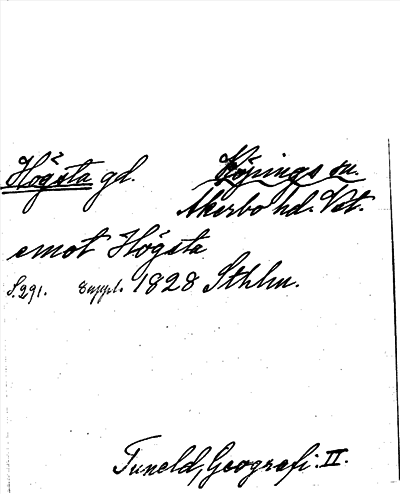 Högsta gd. Köpings sn.
Åkerbo hd. Vst.
emot Högsta
S.291. Suppl. 1828 Sthlm.
Tuneld, Geografi. II.